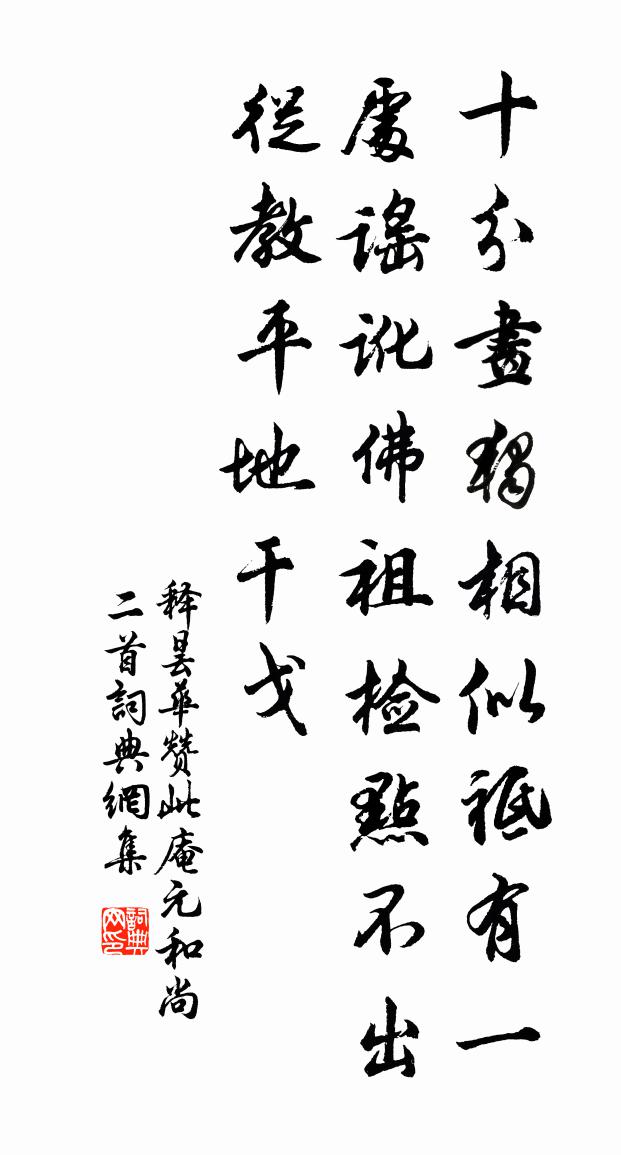 十分畫獨相似祗有一
處謠訛佛祖檢點不出
從教平地干戈
释曇華赞此庵元和尚
二首詞典網集
詞典网印